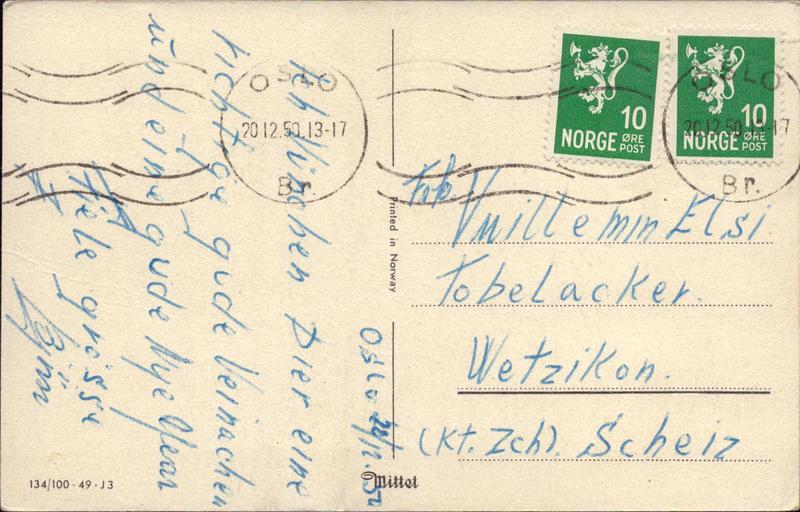 OSLO
20.12.50.13-17
Br.
OSLO
20.12.50.13-17
Br.
10
NORGE ØRE
POST
10
NORGE ØRE
POST
Ich Vinchen Dier eine
richtige gude Veinachen
und eine gude Nye Year
Fiele grüsse
Oslo 20/12.50
Printed in Norway
Frk Vuillemin Elsi
Tobelacker.
Wetzikon.
(Kt. Zch). Scheiz
134/100 - 49 - J 3
Mittet